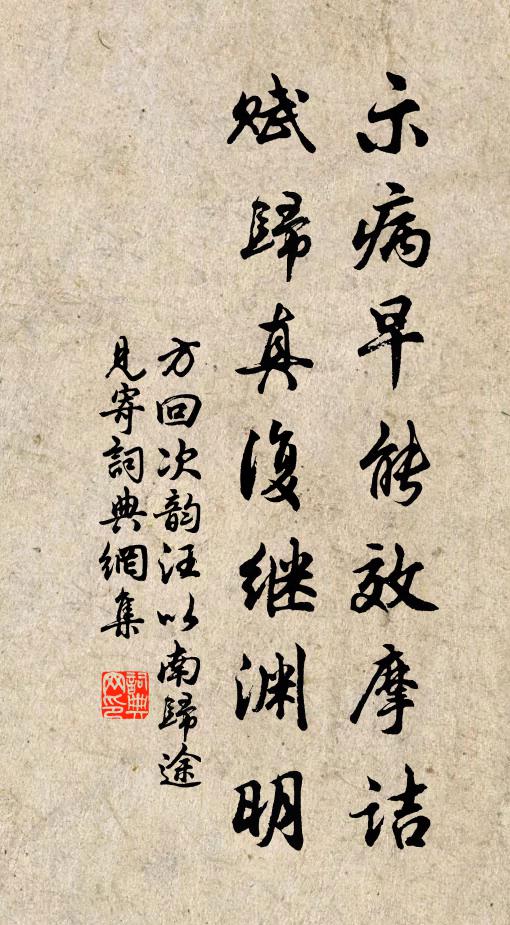 示病早能效摩诘
赋歸真復继渊明
方回次韵汪以南歸途
見寄詞典網集
詞典網印